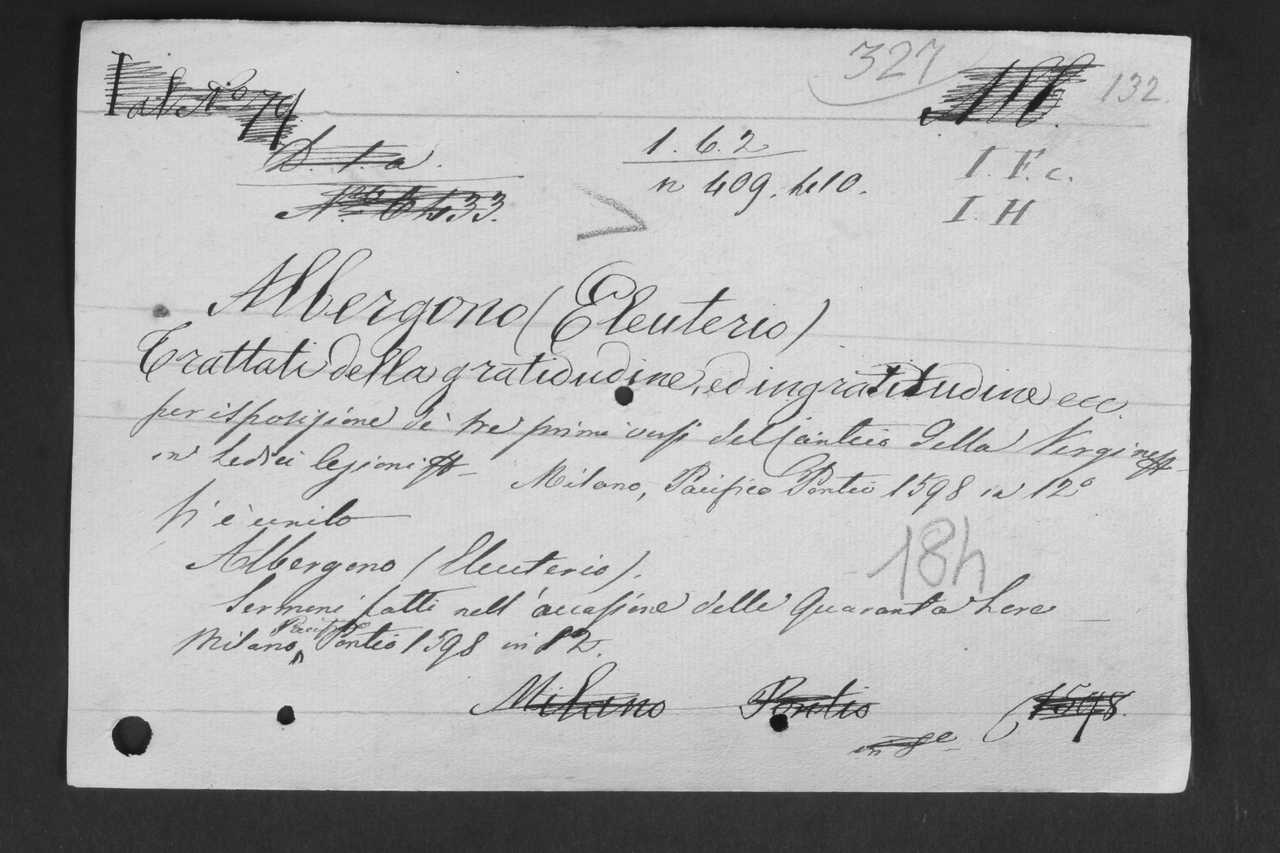 327
132.
79
D. 1 a.
1. 6. 2
I. F. c.
n 409.
I. H
Albergono (Eleuterio)
Trattati della gratidudine, ed ingratitudine ecc.
per isposizione de tre primi versi del Cantico della Vergine
in sedici lezioni Milano, Pacifico Pontio 1598 in 12º
Vi è unito
184
Albergono (Eleuterio).
Sermoni fatti nell'occasione delle Quaranta hore
Milano, Pacifico Pontio 1598 in 12.
Milano Pontio 1598.
in 8º